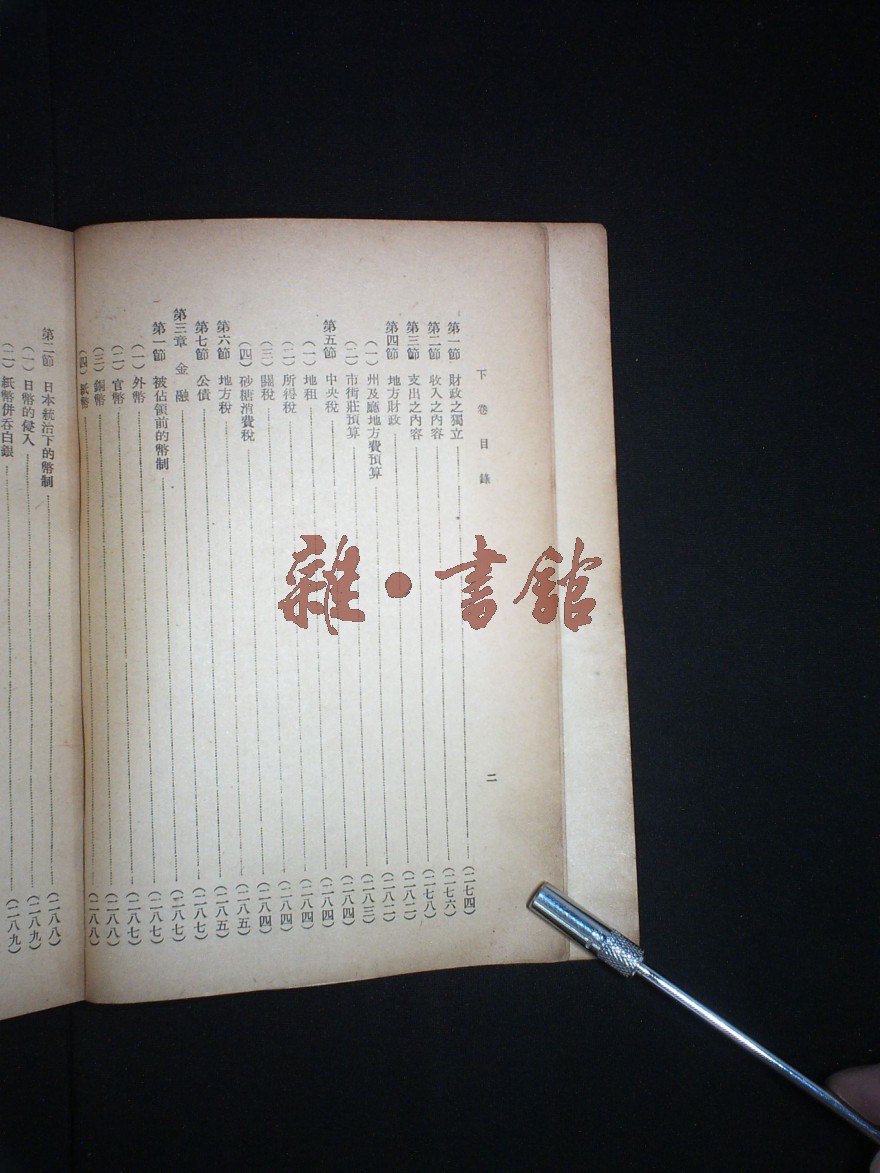 下卷目錄 二
第一節 財政之獨立 (二七四)
第二節 收入之內容 (二七六)
第三節 支出之內容 (二七八)
第四節 地方財政 (二八二)
(一)州及廳地方費預算 (二八二)
(二)市街莊預算 (二八三)
第五節 中央稅 (二八四)
(一)地租 (二八四)
(二)所得稅 (二八四)
(三)關稅 (二八四)
(四)砂糖消費稅 (二八四)
第六節 地方稅 (二八五)
第七節 公債 (二八五)
第三章 金融 (二八七)
第一節 被佔領前的幣制 (二八七)
(一)外幣 (二八七)
(二)官幣 (二八七)
(三)銅幣 (二八八)
(四)紙幣 (二八八)
第二節 日本統治下的幣制 (二八八)
(一)日幣的侵入 (二八九)
(二)紙幣併吞白銀 (二八九)
雜·書館